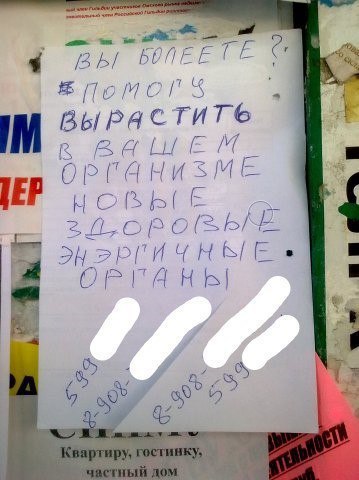 ВЫ БОЛЕЕТЕ?
ПОМОГУ
ВЫРАСТИТЬ
В ВАШЕМ
ОРГАНИЗМЕ
НОВЫЕ
ЗДОРОВЫЕ
ЭНЭРГИЧНЫЕ
ОРГАНЫ
599
8-908-
8-908-
599
Квартиру, гостинку,
частный дом